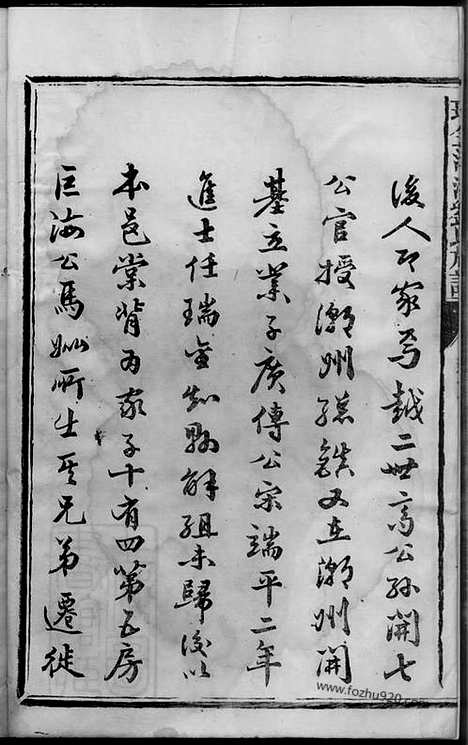 後人又家焉越二世高公孫開七
公官授潮州總鎮又在潮州開
基立業子廣傳公宗端平二年
進士任瑞金知縣解組未歸後以
本邑棠背為家子十有四第五房
巨海公馬妣所生其兄弟遷徙
www.fozhu920.com